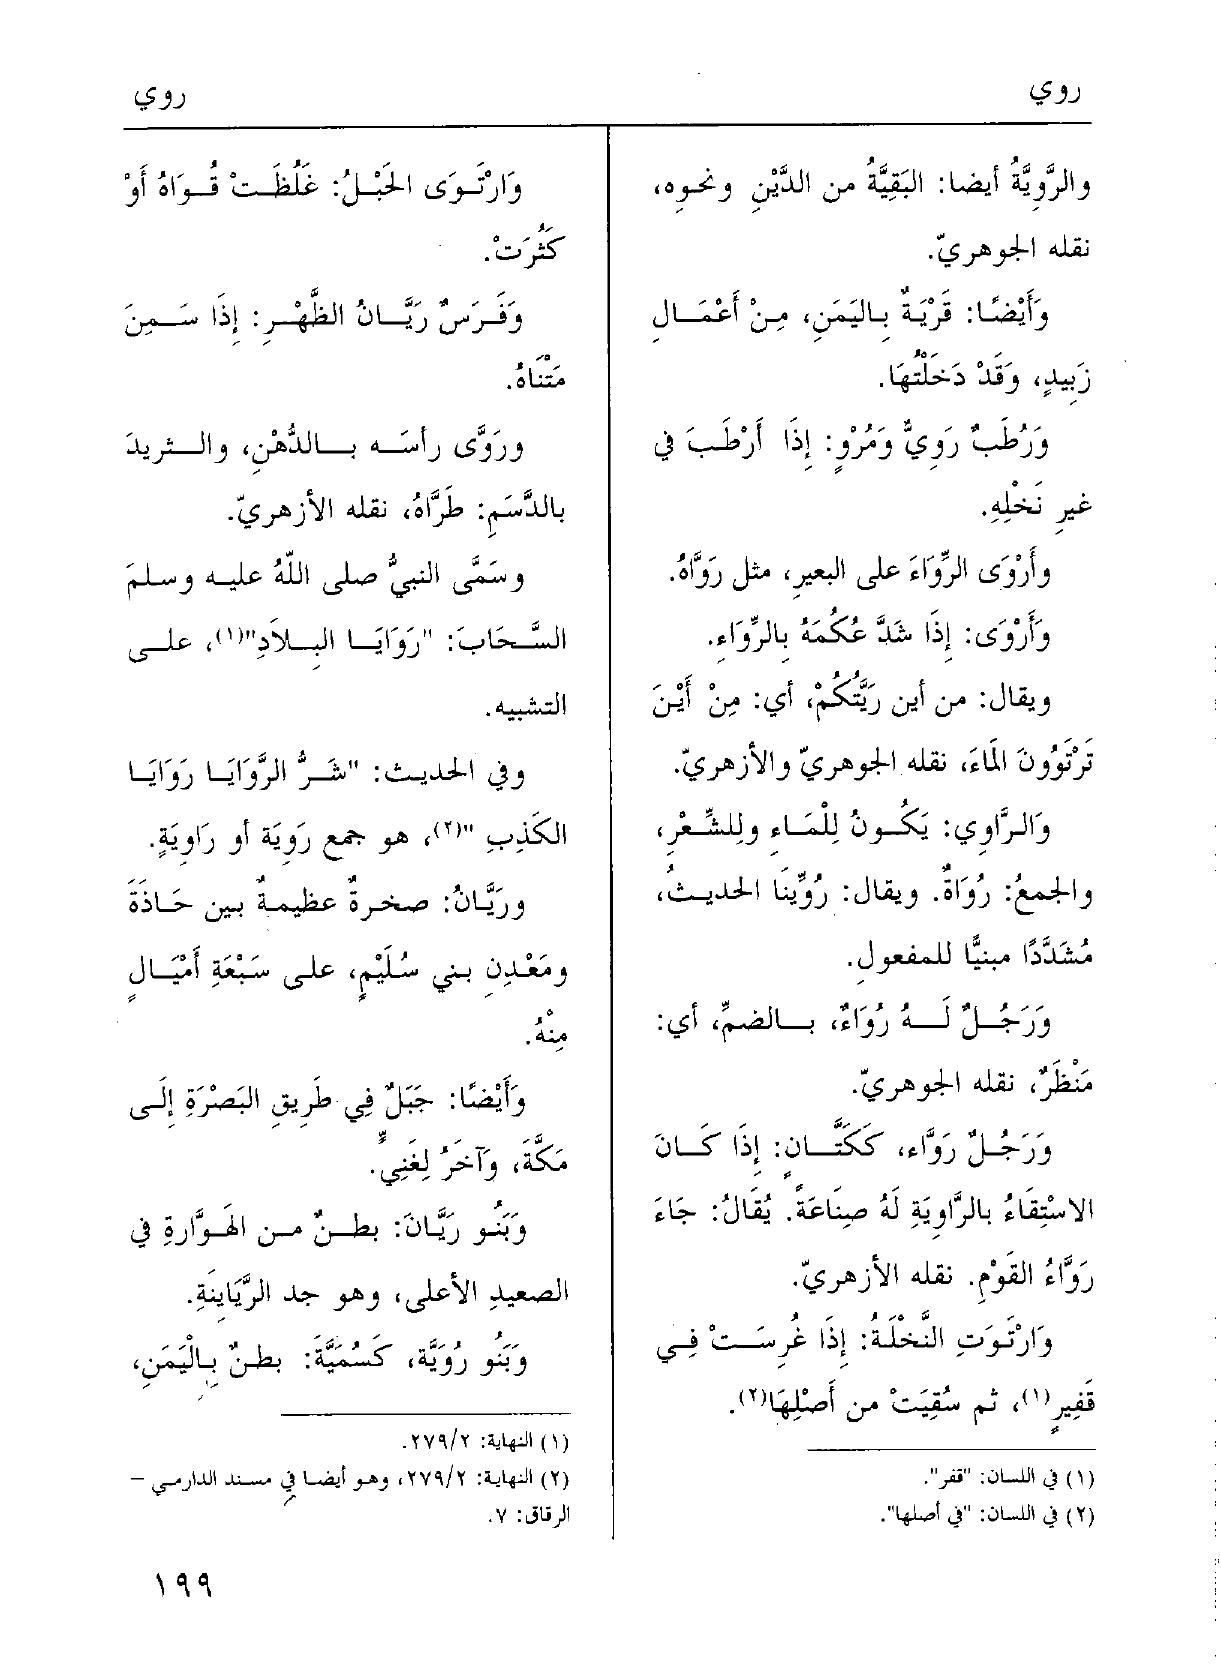 روي
روي
والرَّوِيَّةُ أيضا: البَقِيَّةُ من الدَّيْنِ ونحوِه،
نقله الجوهريّ.
وَأَيْضًا: قَرْيَةٌ بِاليَمَنِ، مِنْ أَعْمَالِ
زَبِيدٍ، وَقَدْ دَخَلْتُهَا.
وَرُطَبٌ رَوِيٌّ وَمُرْوٍ: إِذَا أَرْطَبَ في
غيرِ نَخْلِهِ.
وأَرْوَى الرِّوَاءَ على البعيرِ، مثل رَوَّاهُ.
وَأَرْوَى: إِذَا شَدَّ عُكُمَهُ بِالرِّوَاءِ.
ويقال: من أين رَيَّتُكُمْ، أي: مِنْ أَيْنَ
تَرْتَوُونَ الْمَاءَ، نقله الجوهريّ والأزهريّ.
وَالرَّاوِي: يَكُونُ لِلْمَاءِ وَلِلشِّعْرِ،
والجمعُ: رُوَاةٌ. ويقال: رُوِّينَا الحديثَ،
مُشَدَّدًا مبنيًّا للمفعول.
وَرَجُلٌ لَهُ رُوَاءٌ، بالضمِّ، أي:
مَنْظَرٌ، نقله الجوهريّ.
وَرَجُلٌ رَوَّاء، كَكَتَّانٍ: إِذَا كَانَ
الاسْتِقَاءُ بالرَّاوِيَةِ لَهُ صِنَاعَةً. يُقَالُ: جَاءَ
رَوَّاءُ القَوْمِ. نقله الأزهريّ.
وَارْتَوَتِ النَّخْلَةُ: إِذَا غُرِسَتْ فِي
قَفِيرٍ(١)، ثم سُقِيَتْ من أَصْلِهَا(٢).
(١) في اللسان: "قفر".
(٢) في اللسان: "في أصلها".
وَارْتَوَى الحَبْلُ: غَلُظَتْ قُوَاهُ أَوْ
كَثُرَتْ.
وَفَرَسٌ رَيَّانُ الظَّهْرِ: إِذَا سَمِنَ
مَتْنَاهُ.
ورَوَّى رأسَه بالدُّهْنِ، والثريدَ
بالدَّسَمِ: طَرَّاهُ، نقله الأزهريّ.
وسَمَّى النبيُّ صلى اللهُ عليه وسلمَ
السَّحَابَ: "رَوَايَا البِلَادِ"(١)، على
التشبيه.
وفي الحديث: "شَرُّ الرَّوَايَا رَوَايَا
الكَذِبِ "(٢)، هو جمع رَوِيَة أو رَاوِيَةٍ.
ورَيَّانُ: صخرةٌ عظيمةٌ بين حَاذَةَ
ومَعْدِنِ بني سُلَيْمٍ، على سَبْعَةِ أَمْيَالٍ
مِنْهُ.
وَأَيْضًا: جَبَلٌ فِي طَرِيقِ البَصْرَةِ إِلَى
مَكَّةَ، وَآخَرُ لِغَنِيٍّ.
وَبَنُو رَيَّانَ: بطنٌ من الهَوَّارةِ في
الصعيدِ الأعلى، وهو جد الرَّيَايِنَةِ.
وَبَنُو رُوَيَّة، كَسُمَيَّةَ: بطنٌ بِالْيَمَنِ،
(١) النهاية: ٢/ ٢٧٩.
(٢) النهاية: ٢/ ٢٧٩، وهو أيضا في مسند الدارمي –
الرقاق: ٧.
١٩٩